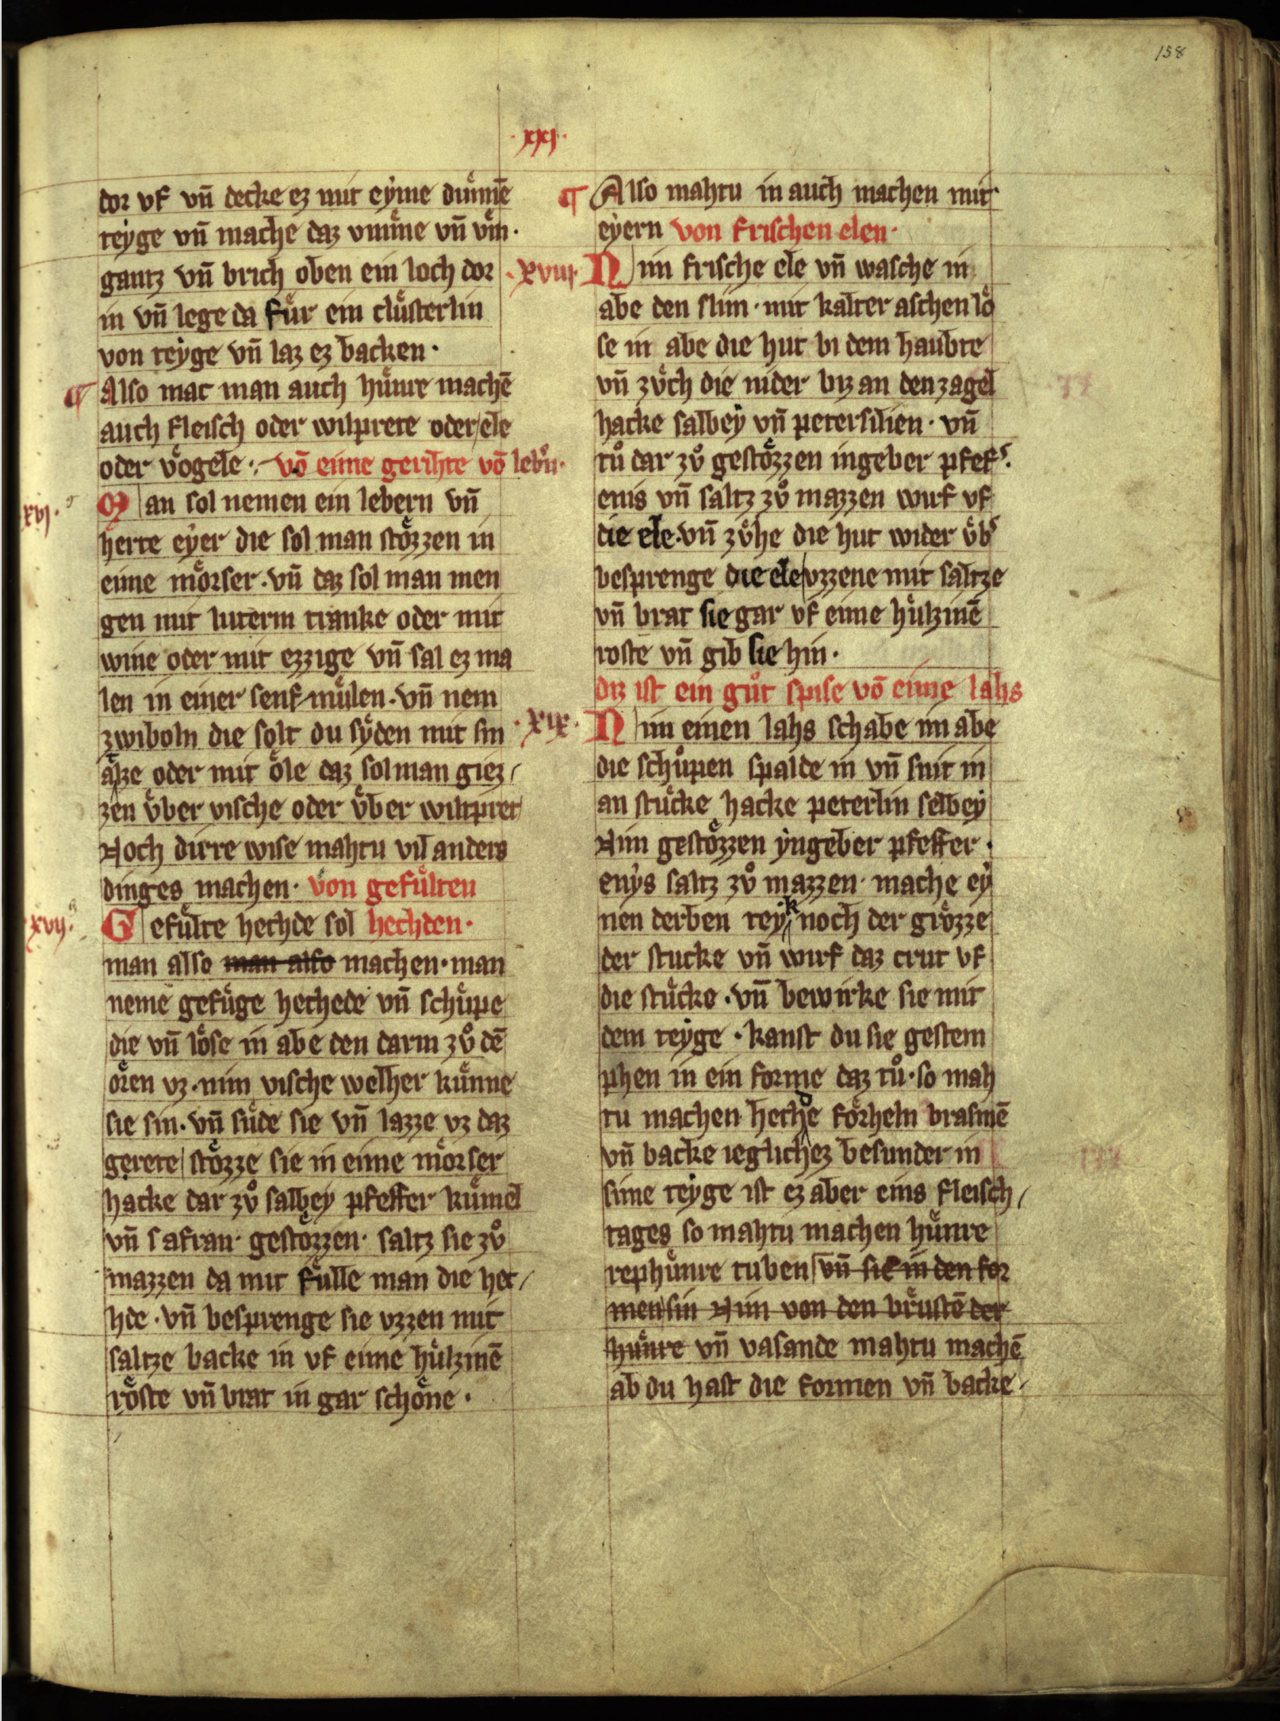 158
·xxi·
dor vf vn̄ decke ez mit eẏme dünnē
teẏge vn̄ mache daz vmme vn̄ vm·
gantz vn̄ brich oben ein loch dor
in vn̄ lege da fuͤr ein cluͤsterlin
von teẏge vn̄ laz ez backen·
¶ Also mac man auch huͤnre machē
auch fleisch oder wilprete oder ele
oder voͤgele· vō eime gerihte vō leb'n·
xvi· Man sol nemen ein lebern vn̄
herte eẏer die sol man stoͤzzen in
eime moͤrser· vn̄ daz sol man men
gen mit luterm tranke oder mit
wine oder mit ezzige vn̄ sal ez ma
len in einer senf muͤlen· vn̄ nem
zwiboln die solt du sẏden mit sm
alze oder mit oͤle daz sol man giez
zen uͤber vische oder uͤber wiltpret
Noch dirre wise mahtu vil anders
dinges machen· von gefuͤlten
xvii· Gefuͤlte hechde sol hechden·
man also man also machen· man
neme gefuͤge hechede vn̄ schuͤpe
die vn̄ loͤse in abe den darm zuͦ dē
oͤren vz· nim vische welher kuͤnne
sie sin· vn̄ suͤde sie vn̄ lazze vz daz
gerete stoͤzze sie in eime moͤrser
hacke dar zuͦ salbey pfeffer kuͤmel
vn̄ safran· gestoͤzzen· saltz sie zuͦ
mazzen da mit fuͤlle man die hec
hde· vn̄ besprenge sie vzzen mit
saltze backe in vf eime huͤlzinē
roͤste vn̄ brat in gar schoͤne·
¶ Also mahtu in auch machen mit
eẏern von frischen elen·
·xviii· Nim frische ele vn̄ wasche in
abe den slim· mit kalter aschen loͤ
se in abe die hut bi dem haubte
vn̄ zuͤch die nider biz an den zagel
hacke salbeẏ vn̄ petersilien· vn̄
tuͦ dar zuͦ gestoͤzzen ingeber pfeff'·
enis vn̄ saltz zuͦ mazzen wirf vf
die ele· vn̄ zuͤhe die hut wider uͤb'
besprenge die ele vzzene mit saltze
vn̄ brat sie gar vf eime huͤlzinē
roste vn̄ gib sie hin·
diz ist ein guͦt spise vō eime lahs
·xix· Nim einen lahs schabe im abe
die schuͦpen spalde in vn̄ snit in
an stuͤcke hacke peterlin selbeẏ
Nim gestoͤzzen ẏngeber pfeffer·
enẏs saltz zuͦ mazzen· mache eẏ
nen derben teyk noch der groͤzze
der stucke vn̄ wirf daz crut vf
die stuͤcke· vn̄ bewirke sie mit
dem teẏge· kanst du sie gestem
phen in ein forme daz tuͦ· so mah
tu machen hechde foͤrheln brasmē
vn̄ backe ieglichez besunder in
sime teẏge ist ez aber eins fleisch
tages so mahtu machen huͤnre
rephuͤnre tuben vn̄ sie in den for
men sin Nim von den bruͤstē der
huͤnre vn̄ vasande mahtu machē
ab du hast die formen vn̄ backe